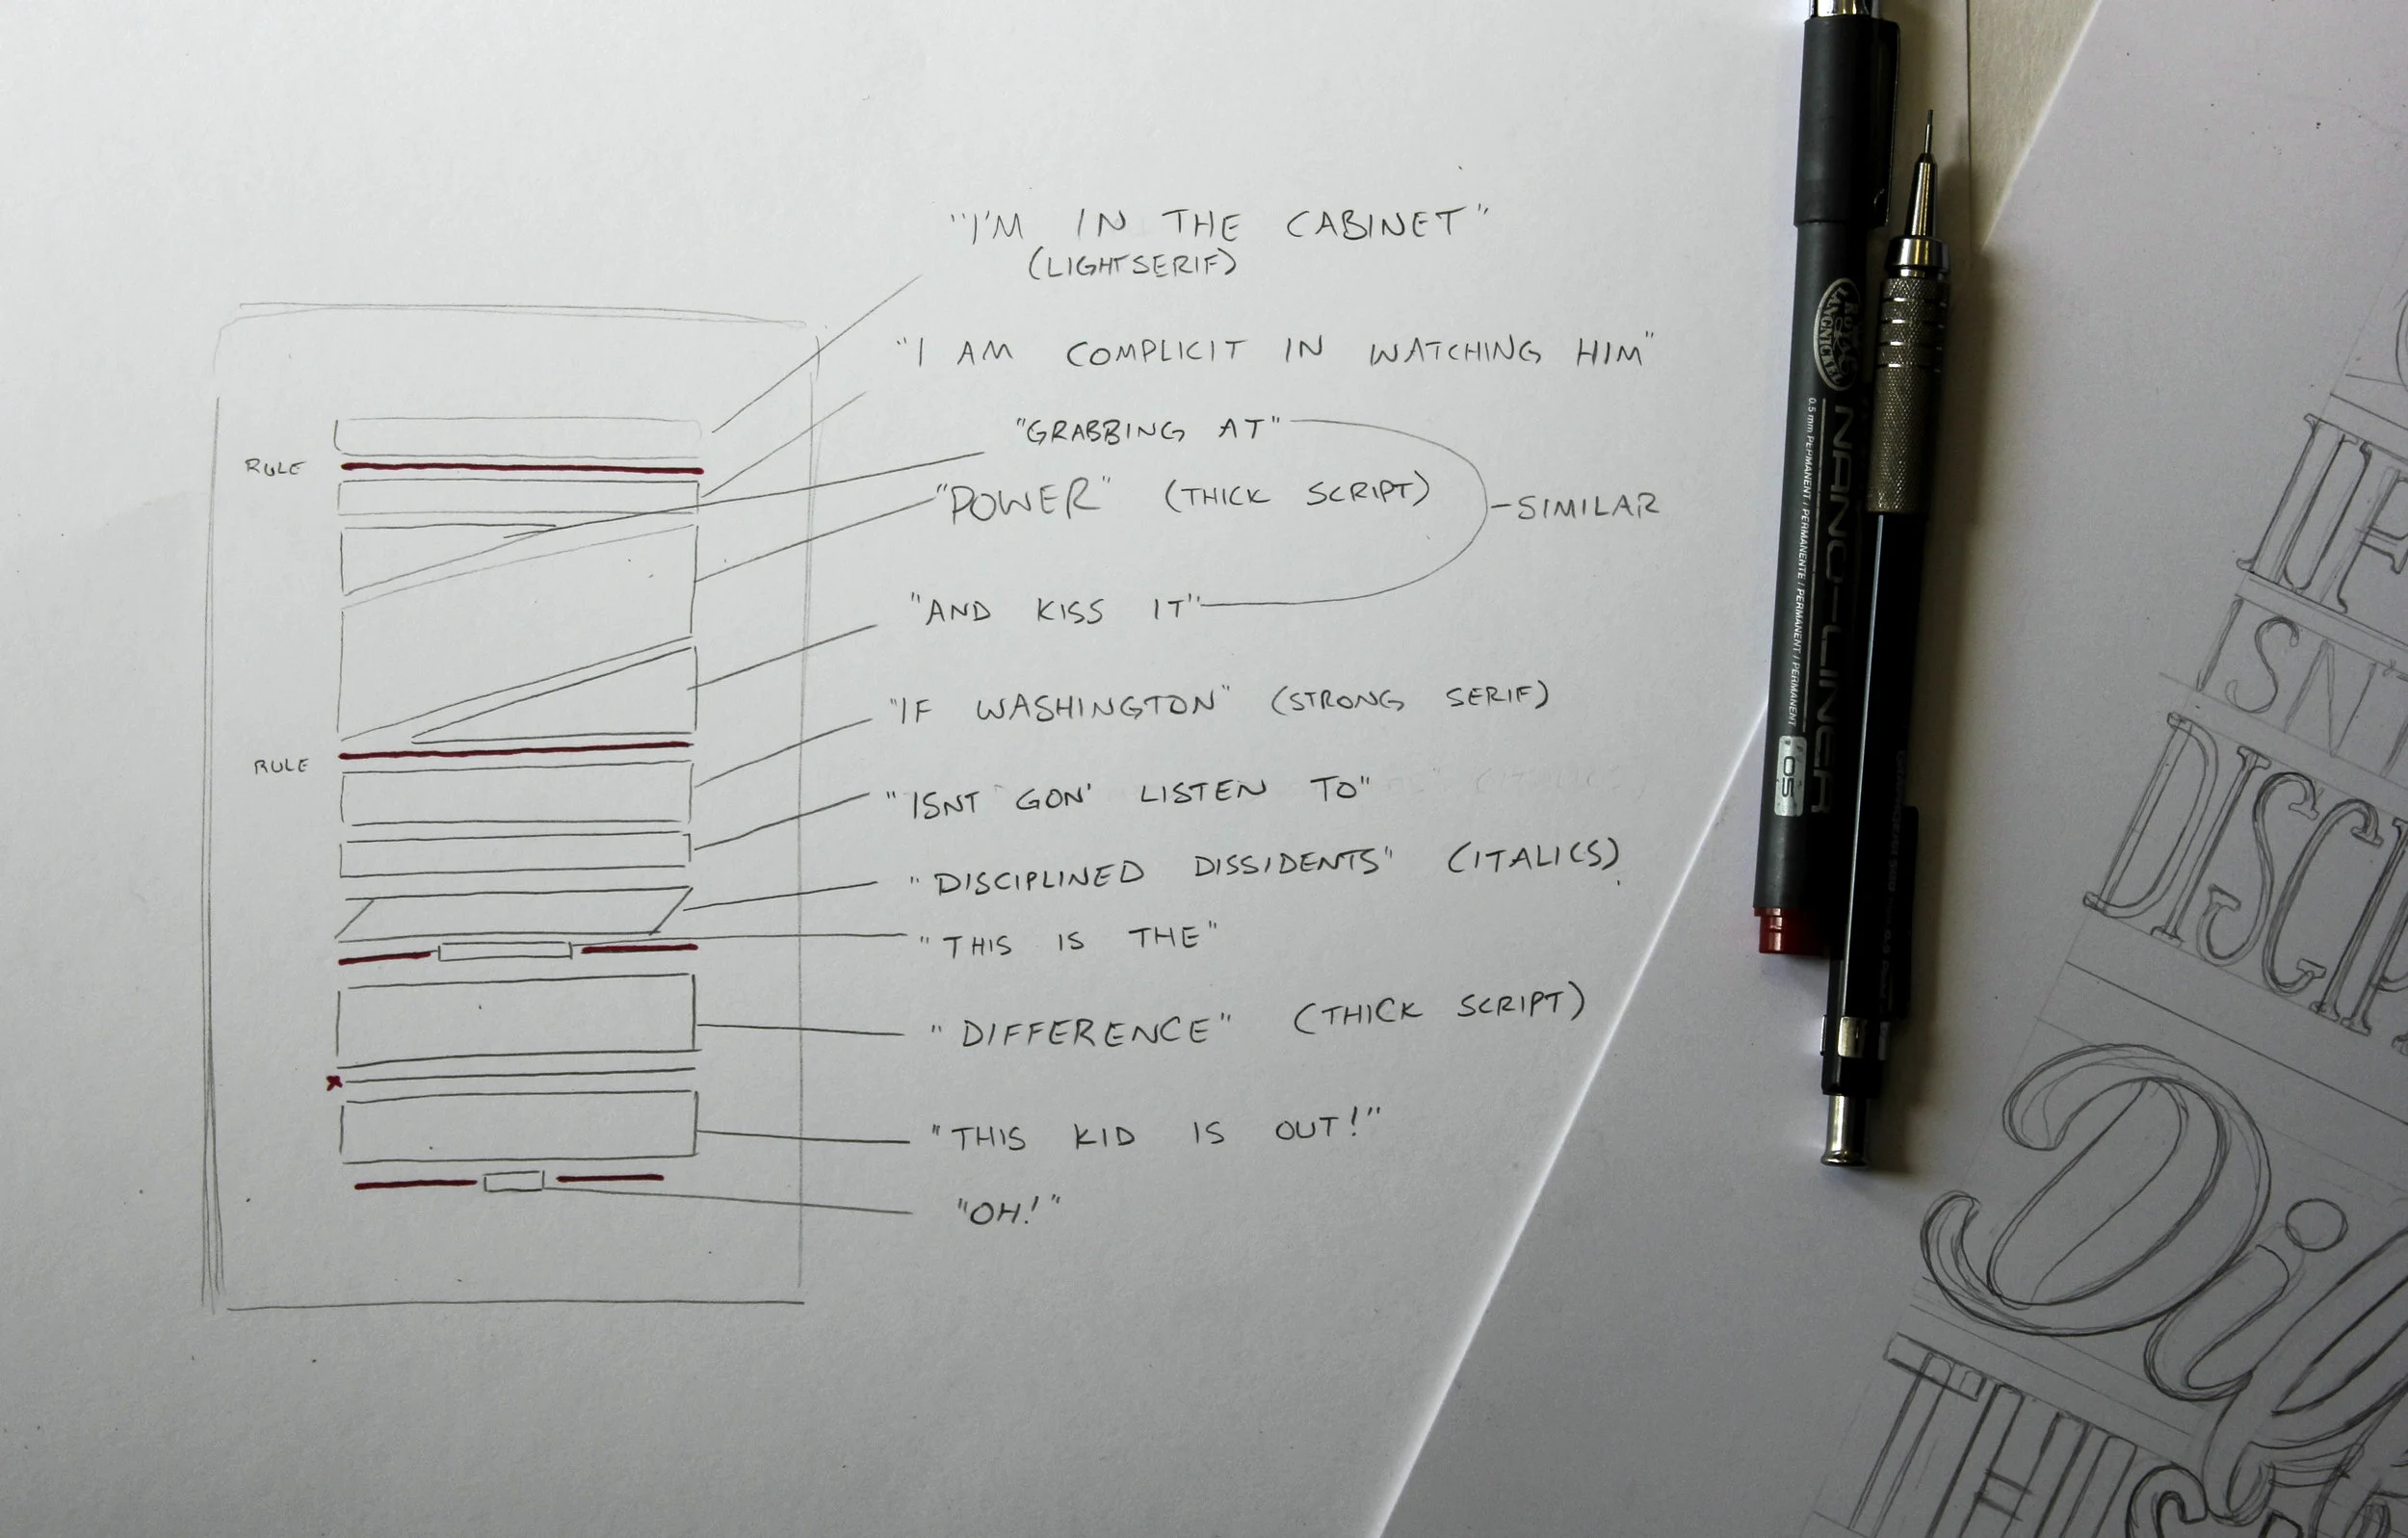 "I'M IN THE CABINET"
(LIGHT SERIF)
"I AM COMPLICIT IN WATCHING HIM"
"GRABBING AT"
RULE
"POWER" (THICK SCRIPT)
SIMILAR
"AND KISS IT"
"IF WASHINGTON" (STRONG SERIF)
RULE
"ISNT GON' LISTEN TO"
"DISCIPLINED DISSIDENTS" (ITALICS)
"THIS IS THE"
"DIFFERENCE" (THICK SCRIPT)
"THIS KID IS OUT!"
"OH!"
ROYAL & LANGNICKEL
NANO-LINER
0.5 mm PERMANENT / PERMANENTE / PERMANENT / PERMANENT
05
IF
ISNT
DISCIP
Dif
THIS